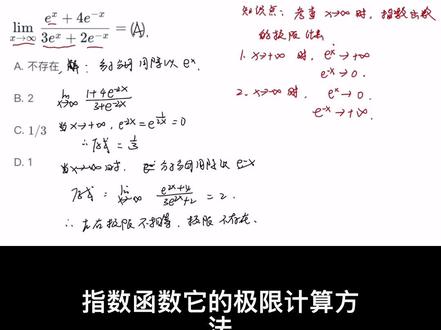 lim x→∞ (e^x + 4e^-x)/(3e^x + 2e^-x) = (A).
A. 不存在
解：分子分母同除以 e^x.
B. 2
lim x→∞ (1+4e^-2x)/(3+e^-2x)
C. 1/3
当 x→+∞, e^-2x = e^(1/2x) = 0
∴ 原式 = 1/3
D. 1
当 x→-∞ 时, 分子分母同除以 e^-x
原式 = lim x→∞ (e^2x+4)/(3e^2x+2) = 2.
∴ 左右极限不相等, 极限不存在.
知识点: 考查 x→∞ 时, 指数函数
的极限
1. x→+∞ 时, e^x→+∞
e^-x→0.
2. x→-∞ 时, e^x→0.
e^-x→+∞.
指数函数它的极限计算方
法